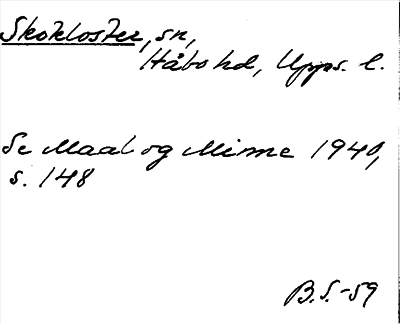 Skokloster, sn,
Håbo hd, Upps. l.
Se Maal og Minne 1940,
s. 148
B.S.-59